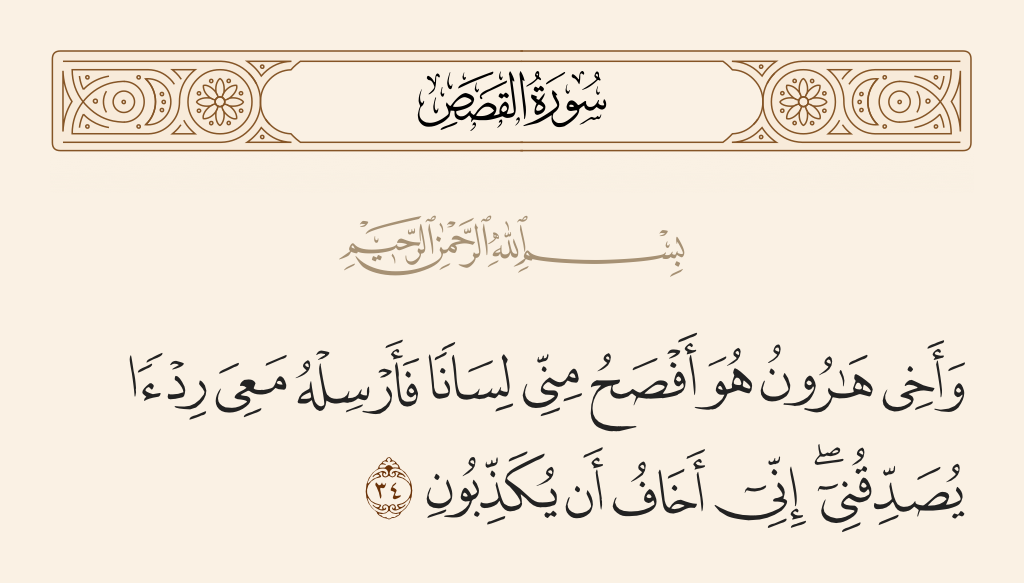 سُورَةُ القَصَصِ
بِسْمِ ٱللَّهِ ٱلرَّحْمَٰنِ ٱلرَّحِيمِ
وَأَخِى هَـٰرُونُ هُوَ أَفْصَحُ مِنِّى لِسَانًا فَأَرْسِلْهُ مَعِىَ رِدْءًا
يُصَدِّقُنِىٓ ۖ إِنِّىٓ أَخَافُ أَن يُكَذِّبُونِ ٣٤